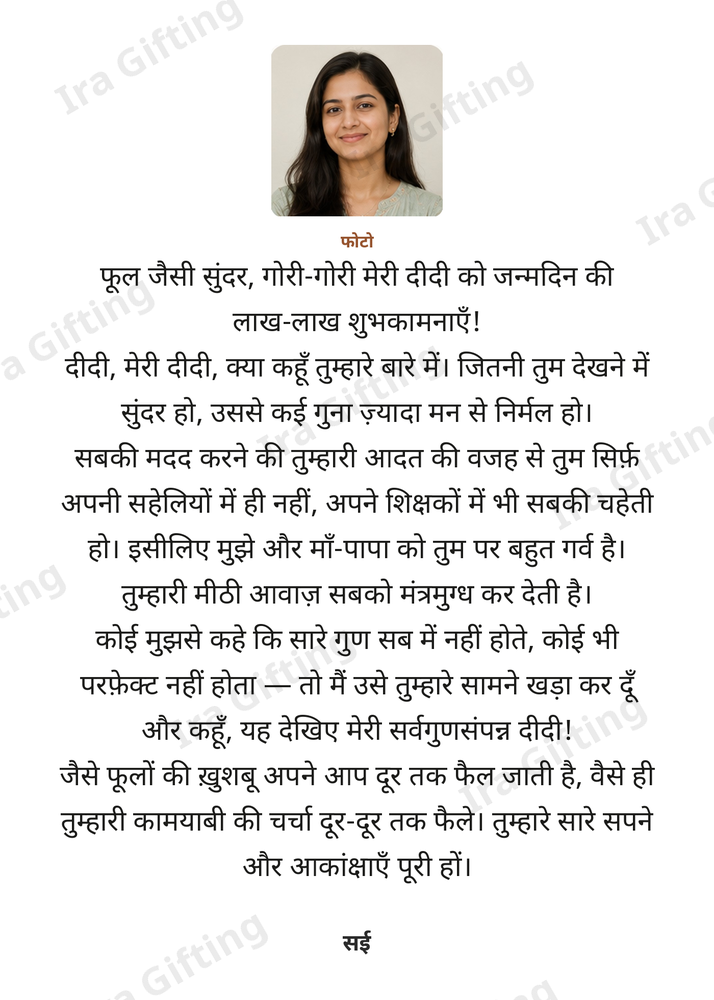 फोटो
फूल जैसी सुंदर, गोरी-गोरी मेरी दीदी को जन्मदिन की
लाख-लाख शुभकामनाएँ!
दीदी, मेरी दीदी, क्या कहूँ तुम्हारे बारे में। जितनी तुम देखने में
सुंदर हो, उससे कई गुना ज़्यादा मन से निर्मल हो।
सबकी मदद करने की तुम्हारी आदत की वजह से तुम सिर्फ़
अपनी सहेलियों में ही नहीं, अपने शिक्षकों में भी सबकी चहेती
हो। इसीलिए मुझे और माँ-पापा को तुम पर बहुत गर्व है।
तुम्हारी मीठी आवाज़ सबको मंत्रमुग्ध कर देती है।
कोई मुझसे कहे कि सारे गुण सब में नहीं होते, कोई भी
परफ़ेक्ट नहीं होता — तो मैं उसे तुम्हारे सामने खड़ा कर दूँ
और कहूँ, यह देखिए मेरी सर्वगुणसंपन्न दीदी!
जैसे फूलों की ख़ुशबू अपने आप दूर तक फैल जाती है, वैसे ही
तुम्हारी कामयाबी की चर्चा दूर-दूर तक फैले। तुम्हारे सारे सपने
और आकांक्षाएँ पूरी हों।
सई
Ira Gifting
Ira Gifting
Ira G
ra Gifting
Ira Gifting
Ira Gifting
ting
Ira Gifting
Ira Gifting
ra Gifting